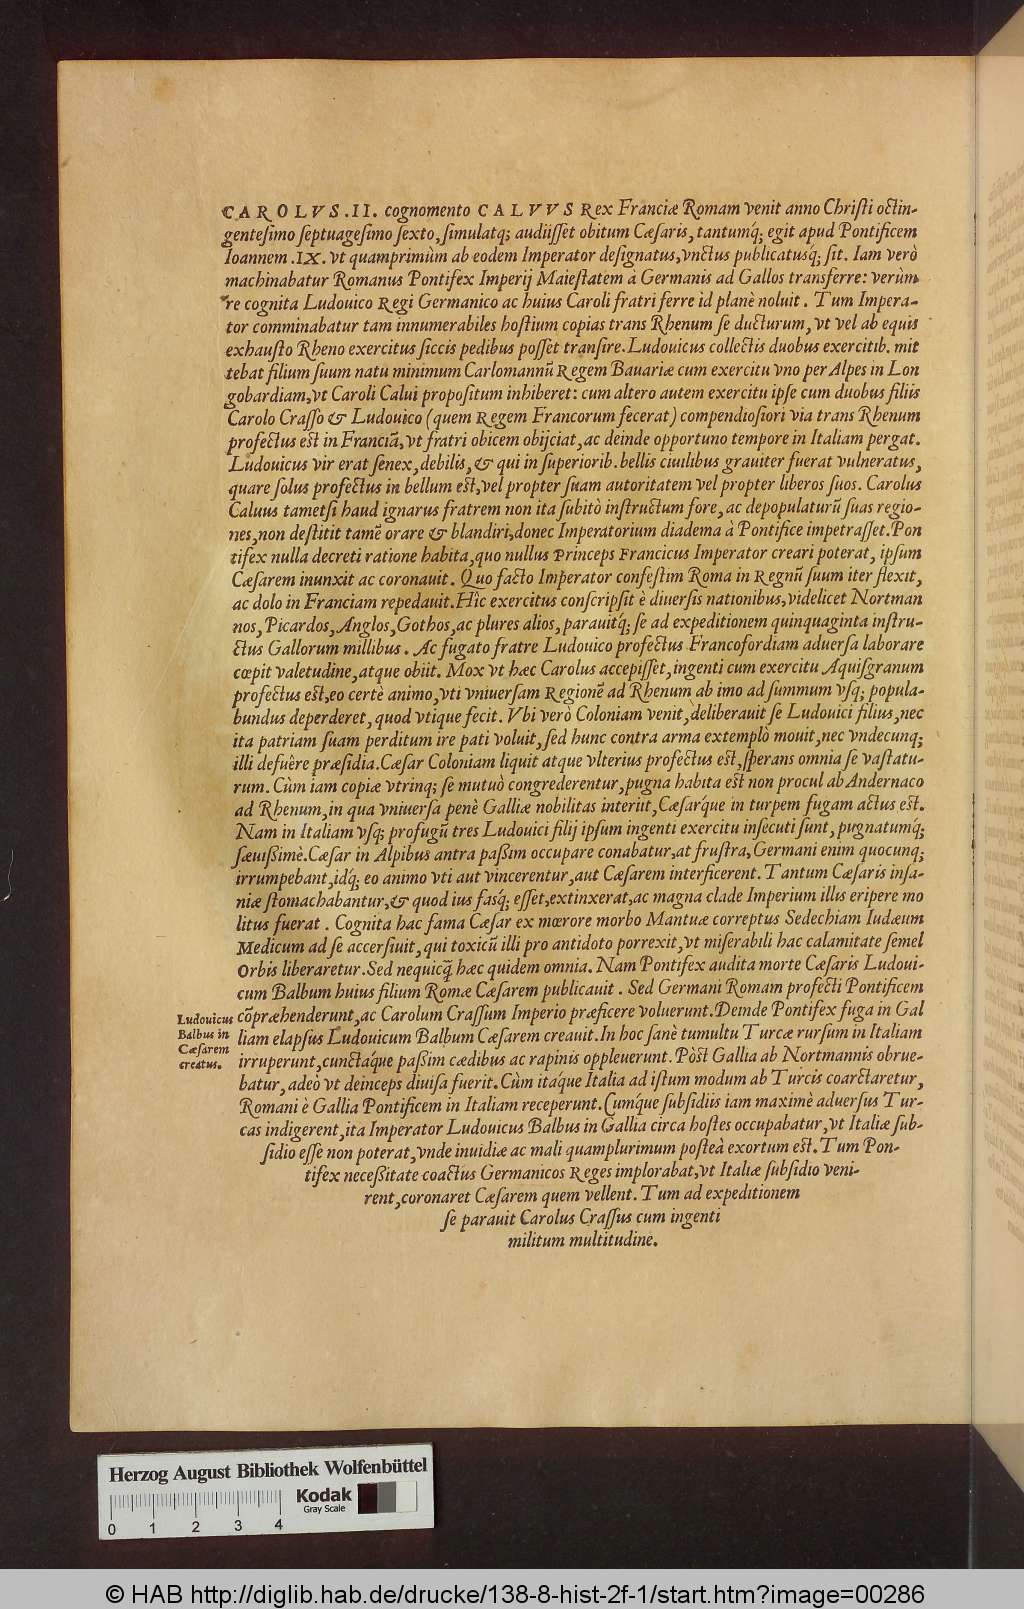 CAROLVS .II. cognomento CALVVS Rex Franciæ Romam venit anno Chriſti octin-
genteſimo ſeptuageſimo ſexto, ſimulatq; audiiſſet obitum Cæſaris, tantumq́; egit apud Pontificem
Ioannem .IX. vt quamprimùm ab eodem Imperator deſignatus, vnctus publicatusq́; ſit. Iam verò
machinabatur Romanus Pontifex Imperij Maieſtatem à Germanis ad Gallos transferre: verùm
re cognita Ludouico Regi Germanico ac huius Caroli fratri ferre id planè noluit. Tum Impera-
tor comminabatur tam innumerabiles hoſtium copias trans Rhenum ſe ducturum, vt vel ab equis
exhauſto Rheno exercitus ſiccis pedibus poſſet tranſire. Ludouicus collectis duobus exercitib. mit
tebat filium ſuum natu minimum Carlomannũ Regem Bauariæ cum exercitu vno per Alpes in Lon
gobardiam, vt Caroli Calui propoſitum inhiberet: cum altero autem exercitu ipſe cum duobus filiis
Carolo Craſſo & Ludouico (quem Regem Francorum fecerat) compendioſiori via trans Rhenum
profectus eſt in Franciã, vt fratri obicem obijciat, ac deinde opportuno tempore in Italiam pergat.
Ludouicus vir erat ſenex, debilis, & qui in ſuperiorib. bellis ciuilibus grauiter fuerat vulneratus,
quare ſolus profectus in bellum eſt, vel propter ſuam autoritatem vel propter liberos ſuos. Carolus
Caluus tametſi haud ignarus fratrem non ita ſubitò inſtructum fore, ac depopulaturũ ſuas regio-
nes, non deſtitit tamẽ orare & blandiri, donec Imperatorium diadema à Pontifice impetraſſet. Pon
tifex nulla decreti ratione habita, quo nullus Princeps Francicus Imperator creari poterat, ipſum
Cæſarem inunxit ac coronauit. Quo facto Imperator confeſtim Roma in Regnũ ſuum iter flexit,
ac dolo in Franciam repedauit. Hîc exercitus conſcripſit è diuerſis nationibus, videlicet Nortman
nos, Picardos, Anglos, Gothos, ac plures alios, parauitq́; ſe ad expeditionem quinquaginta inſtru-
ctus Gallorum millibus. Ac fugato fratre Ludouico profectus Francofordiam aduerſa laborare
cœpit valetudine, atque obiit. Mox vt hæc Carolus accepiſſet, ingenti cum exercitu Aquiſgranum
profectus eſt, eo certè animo, vti vniuerſam Regionẽ ad Rhenum ab imo ad ſummum vſq; popula-
bundus deperderet, quod vtique fecit. Vbi verò Coloniam venit, deliberauit ſe Ludouici filius, nec
ita patriam ſuam perditum ire pati voluit, ſed hunc contra arma extemplò mouit, nec vndecunq;
illi defuêre præſidia. Cæſar Coloniam liquit atque vlterius profectus eſt, ſperans omnia ſe vaſtatu-
rum. Cùm iam copiæ vtrinq; ſe mutuò congrederentur, pugna habita eſt non procul ab Andernaco
ad Rhenum, in qua vniuerſa penè Galliæ nobilitas interiit, Cæſarq́ue in turpem fugam actus eſt.
Nam in Italiam vſq; profugũ tres Ludouici filij ipſum ingenti exercitu inſecuti ſunt, pugnatumq́;
ſæuiſſimè. Cæſar in Alpibus antra paſſim occupare conabatur, at fruſtra, Germani enim quocunq;
irrumpebant, idq́; eo animo vti aut vincerentur, aut Cæſarem interficerent. Tantum Cæſaris inſa-
niæ ſtomachabantur, & quod ius fasq́; eſſet, extinxerat, ac magna clade Imperium illus eripere mo
litus fuerat. Cognita hac fama Cæſar ex mœrore morbo Mantuæ correptus Sedechiam Iudæum
Medicum ad ſe accerſiuit, qui toxicũ illi pro antidoto porrexit, vt miſerabili hac calamitate ſemel
Orbis liberaretur. Sed nequicq̃ hæc quidem omnia. Nam Pontifex audita morte Cæſaris Ludoui-
cum Balbum huius filium Romæ Cæſarem publicauit. Sed Germani Romam profecti Pontificem
cõpræhenderunt, ac Carolum Craſſum Imperio præficere voluerunt. Deinde Pontifex fuga in Gal
liam elapſus Ludouicum Balbum Cæſarem creauit. In hoc ſanè tumultu Turcæ rurſum in Italiam
irruperunt, cunctaq́ue paſſim cædibus ac rapinis oppleuerunt. Pòſt Gallia ab Nortmannis obrue-
batur, adeò vt deinceps diuiſa fuerit. Cùm itaq́ue Italia ad iſtum modum ab Turcis coarctaretur,
Romani è Gallia Pontificem in Italiam receperunt. Cumq́ue ſubſidiis iam maximè aduerſus Tur-
cas indigerent, ita Imperator Ludouicus Balbus in Gallia circa hoſtes occupabatur, vt Italiæ ſub-
ſidio eſſe non poterat, vnde inuidiæ ac mali quamplurimum poſteà exortum eſt. Tum Pon-
tifex neceſſitate coactus Germanicos Reges implorabat, vt Italiæ ſubſidio veni-
rent, coronaret Cæſarem quem vellent. Tum ad expeditionem
ſe parauit Carolus Craſſus cum ingenti
militum multitudine.
Ludouicus
Balbus in
Cæſarem
creatus.
Herzog August Bibliothek Wolfenbüttel
Kodak
Gray Scale
0 1 2 3 4
© HAB http://diglib.hab.de/drucke/138-8-hist-2f-1/start.htm?image=00286